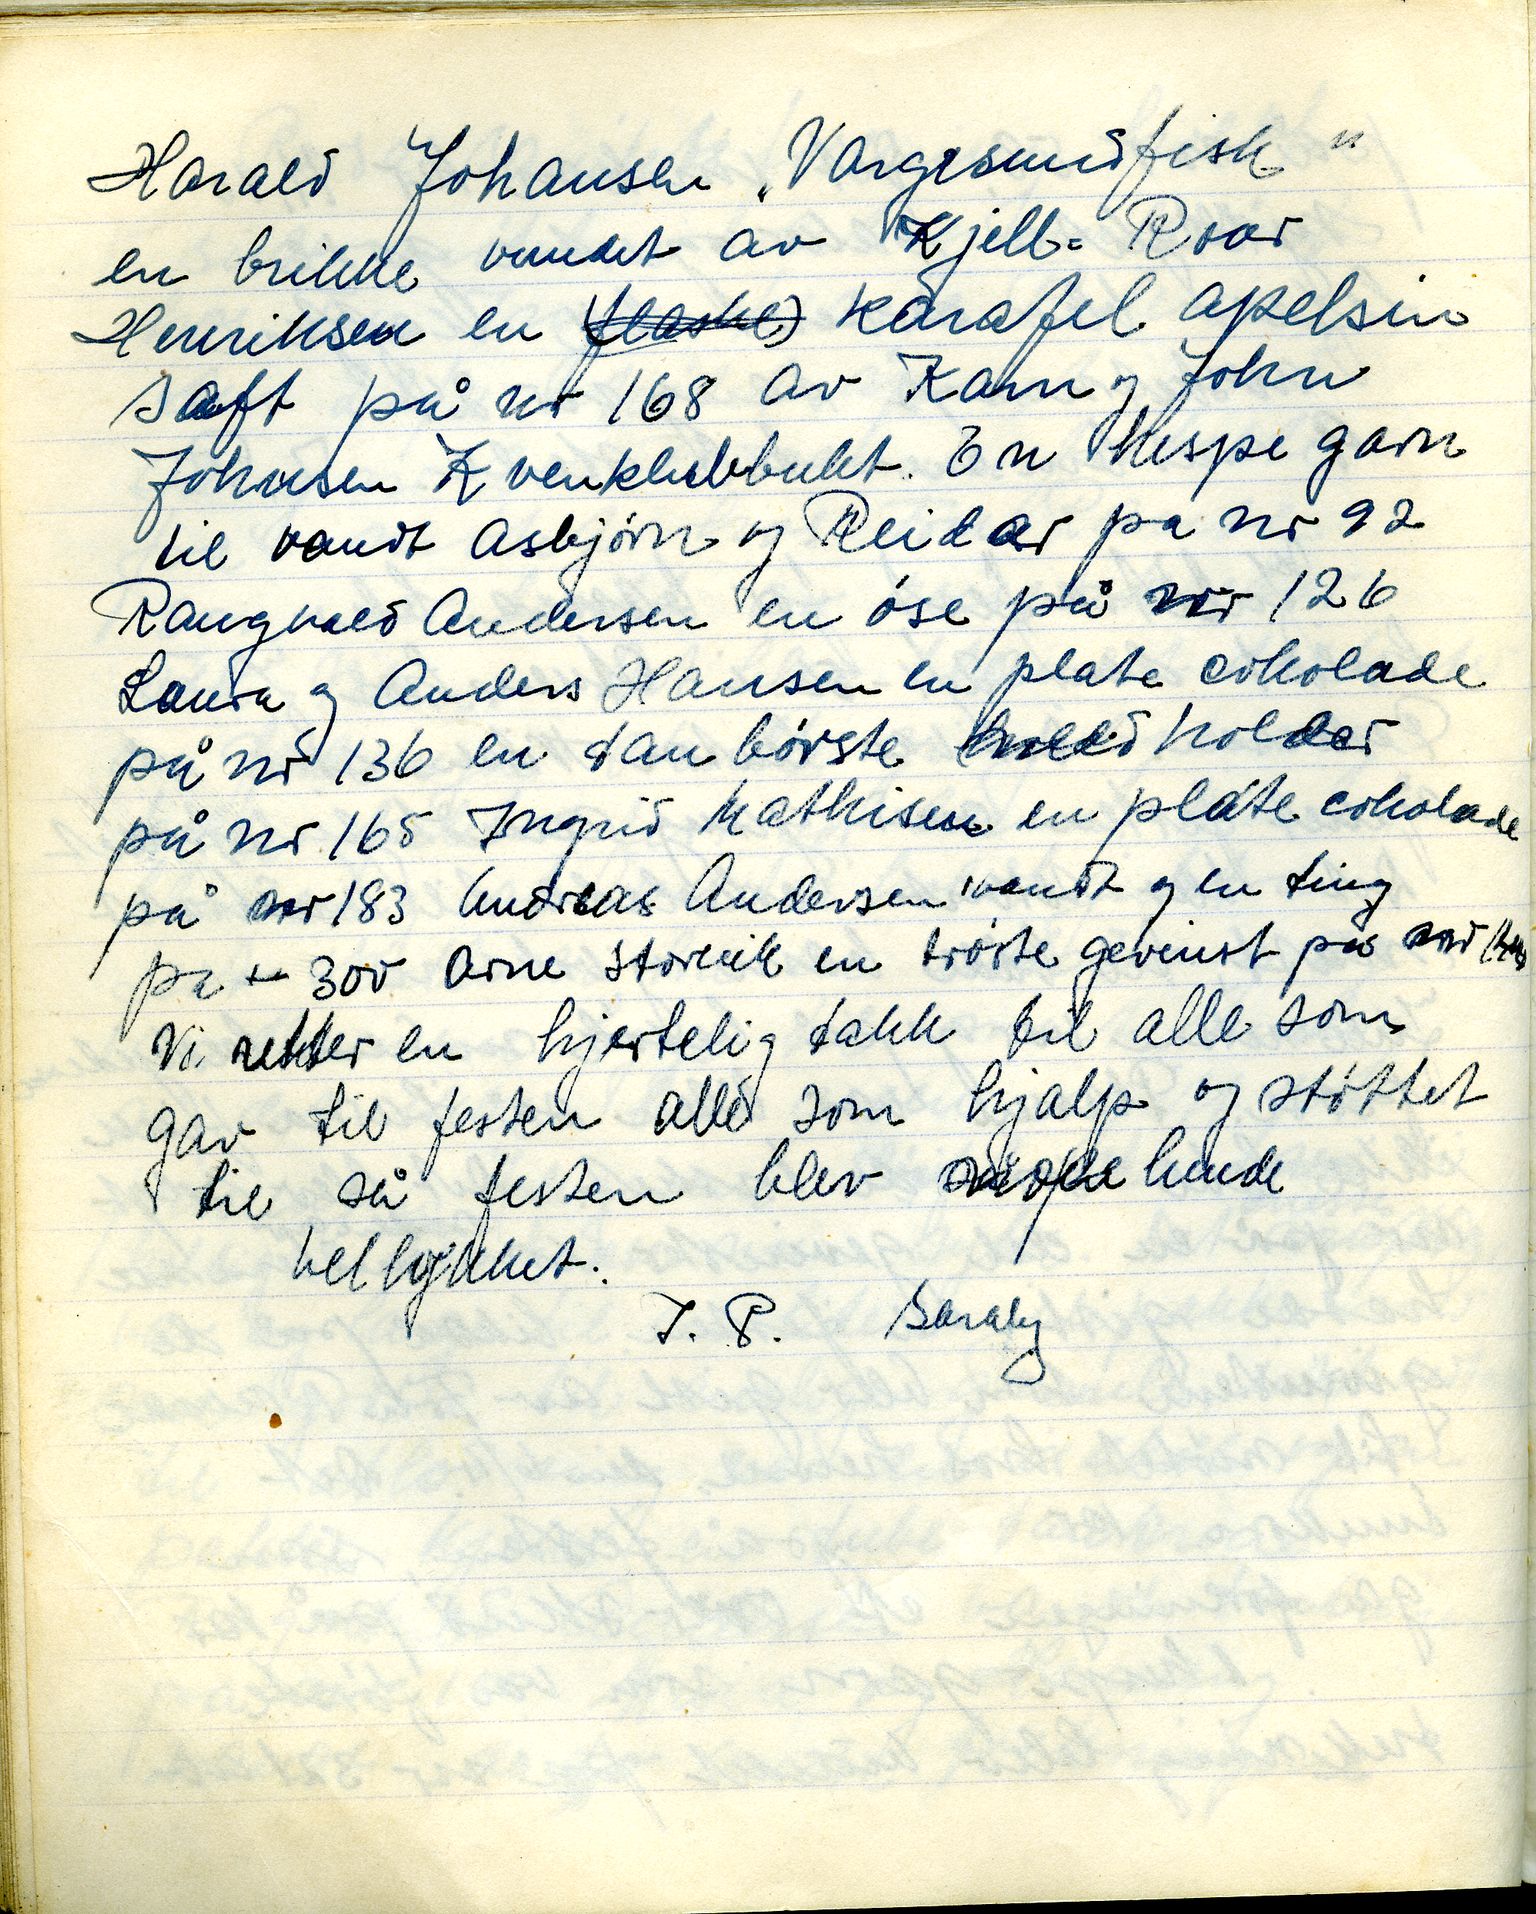 Harald Johansen „Vargesundfisk"
en brikke vundet av Kjell-Roar
Henriksen en (flaske) karafel apelsin
saft på nr 168 av Karn og John
Johnsen Kvenklubbukt. En hespe garn
til vandt Asbjørn og Reidar pa nr 92
Rangvald Andersen en øse på nr 126
Laura og Anders Hansen en plate cokolade
på nr 136 en tan børste holder
på nr 165 Ingrid Mathisen en plate cokolade
på nr 183 Andreas Andersen vandt og en ting
pa 300 Arne Storvik en trøste gevinst på nr
Vi retter en hjertelig takk til alle som
gav til festen alle som hjalp og støttet
til så festen blev
vellykket.
J. P. Saraby